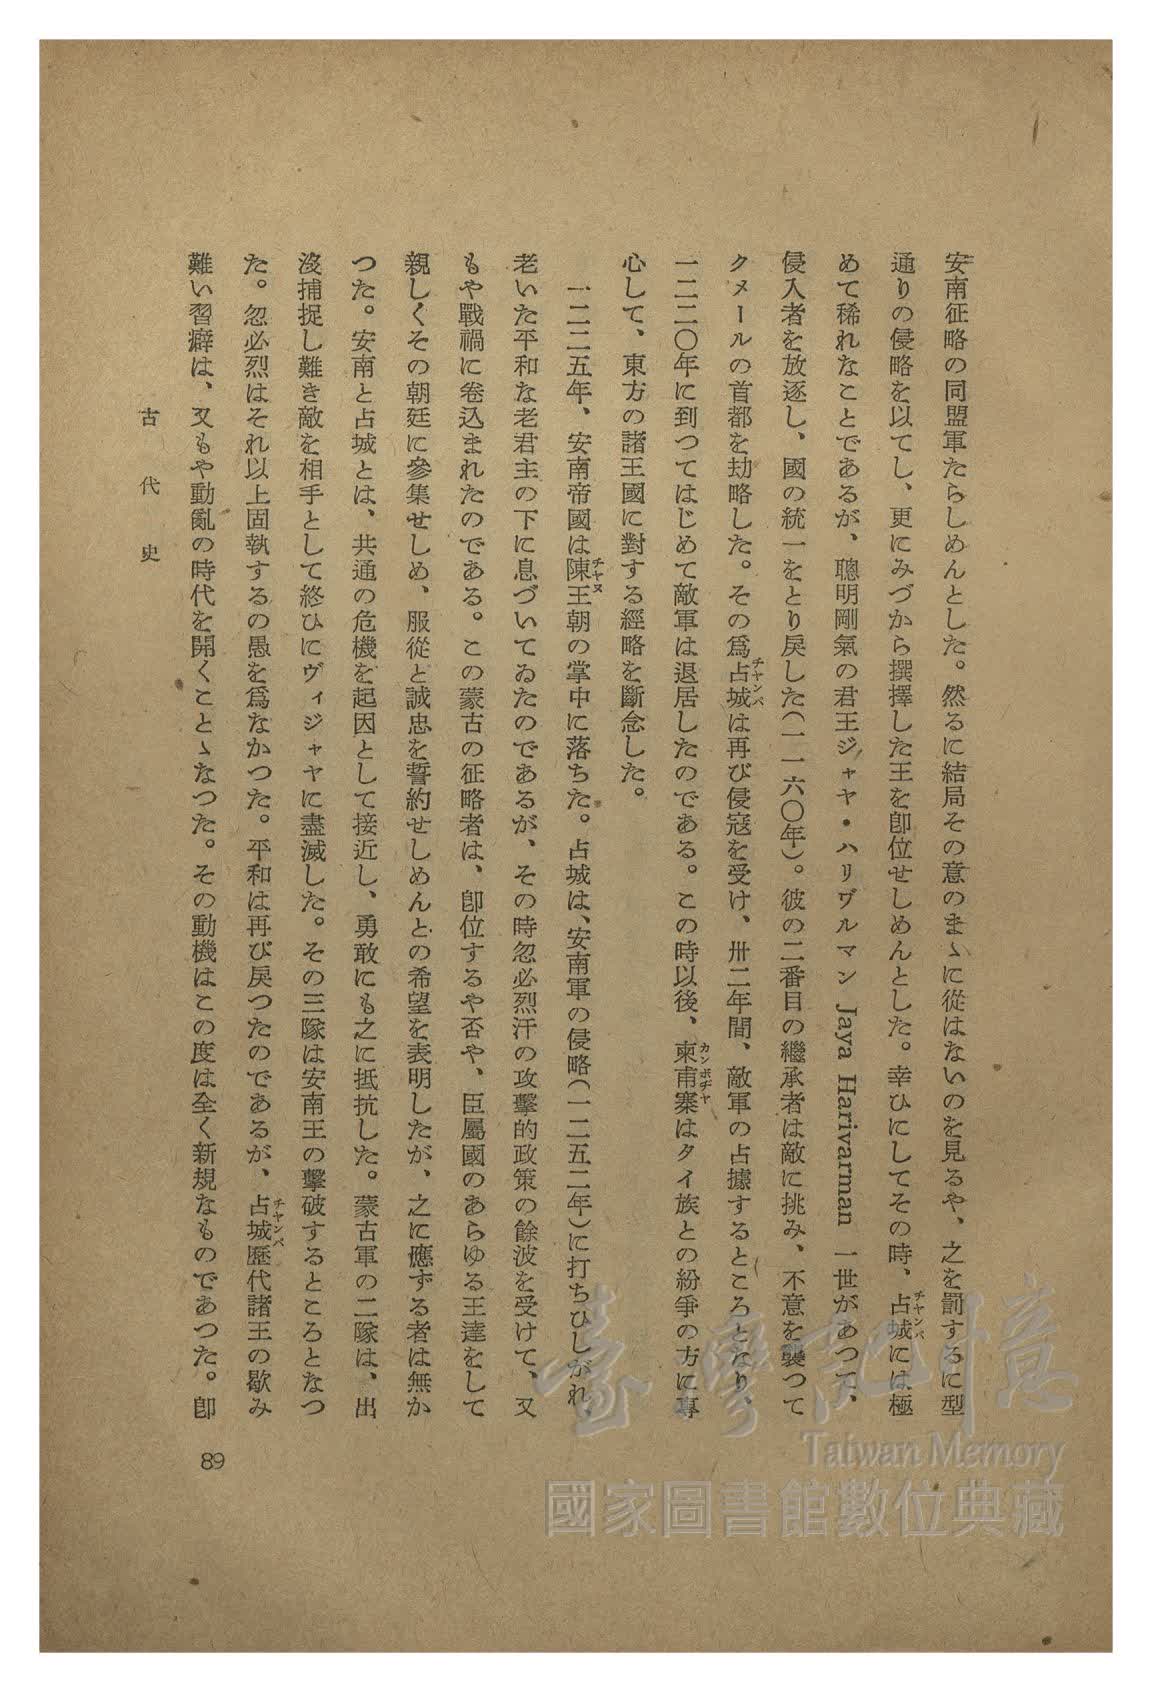 安南征略の同盟軍たらしめんとした。然るに結局その意のまゝに從はないのを見るや、之を罰するに型
通りの侵略を以てし、更にみづから撰擇した王を卽位せしめんとした。幸ひにしてその時、占城には極
チヤンパ
めて稀れなことであるが、聰明剛氣の君王ジャヤ・ハリヴルマン Jaya Harivarman 一世があつて、
侵入者を放逐し、國の統一をとり戻した(一一六〇年)。彼の二番目の繼承者は敵に挑み、不意を襲つて
クメールの首都を劫略した。その爲占城は再び侵寇を受け、卅二年間、敵軍の占據するところとなり、
チヤンパ
一二二〇年に到つてはじめて敵軍は退居したのである。この時以後、柬甫寨はタイ族との紛爭の方に專
カンボヂヤ
心して、東方の諸王國に對する經略を斷念した。
一二二五年、安南帝國は陳王朝の掌中に落ちた。占城は、安南軍の侵略(一二五二年)に打ちひしがれ、
チヤヌ
老いた平和な老君主の下に息づいてゐたのであるが、その時忽必烈汗の攻擊的政策の餘波を受けて、又
もや戰禍に卷込まれたのである。この蒙古の征略者は、卽位するや否や、臣屬國のあらゆる王達をして
親しくその朝廷に參集せしめ、服從と誠忠を誓約せしめんとの希望を表明したが、之に應ずる者は無か
つた。安南と占城とは、共通の危機を起因として接近し、勇敢にも之に抵抗した。蒙古軍の二隊は、出
沒捕捉し難き敵を相手として終ひにヴィジャヤに盡滅した。その三隊は安南王の擊破するところとなつ
た。忽必烈はそれ以上固執するの愚を爲なかつた。平和は再び戾つたのであるが、占城歷代諸王の歇み
チヤンパ
難い習癖は、又もや動亂の時代を開くことゝなつた。その動機はこの度は全く新規なものであつた。卽
古代史
89
臺灣記憶
Taiwan Memory
國家圖書館數位典藏